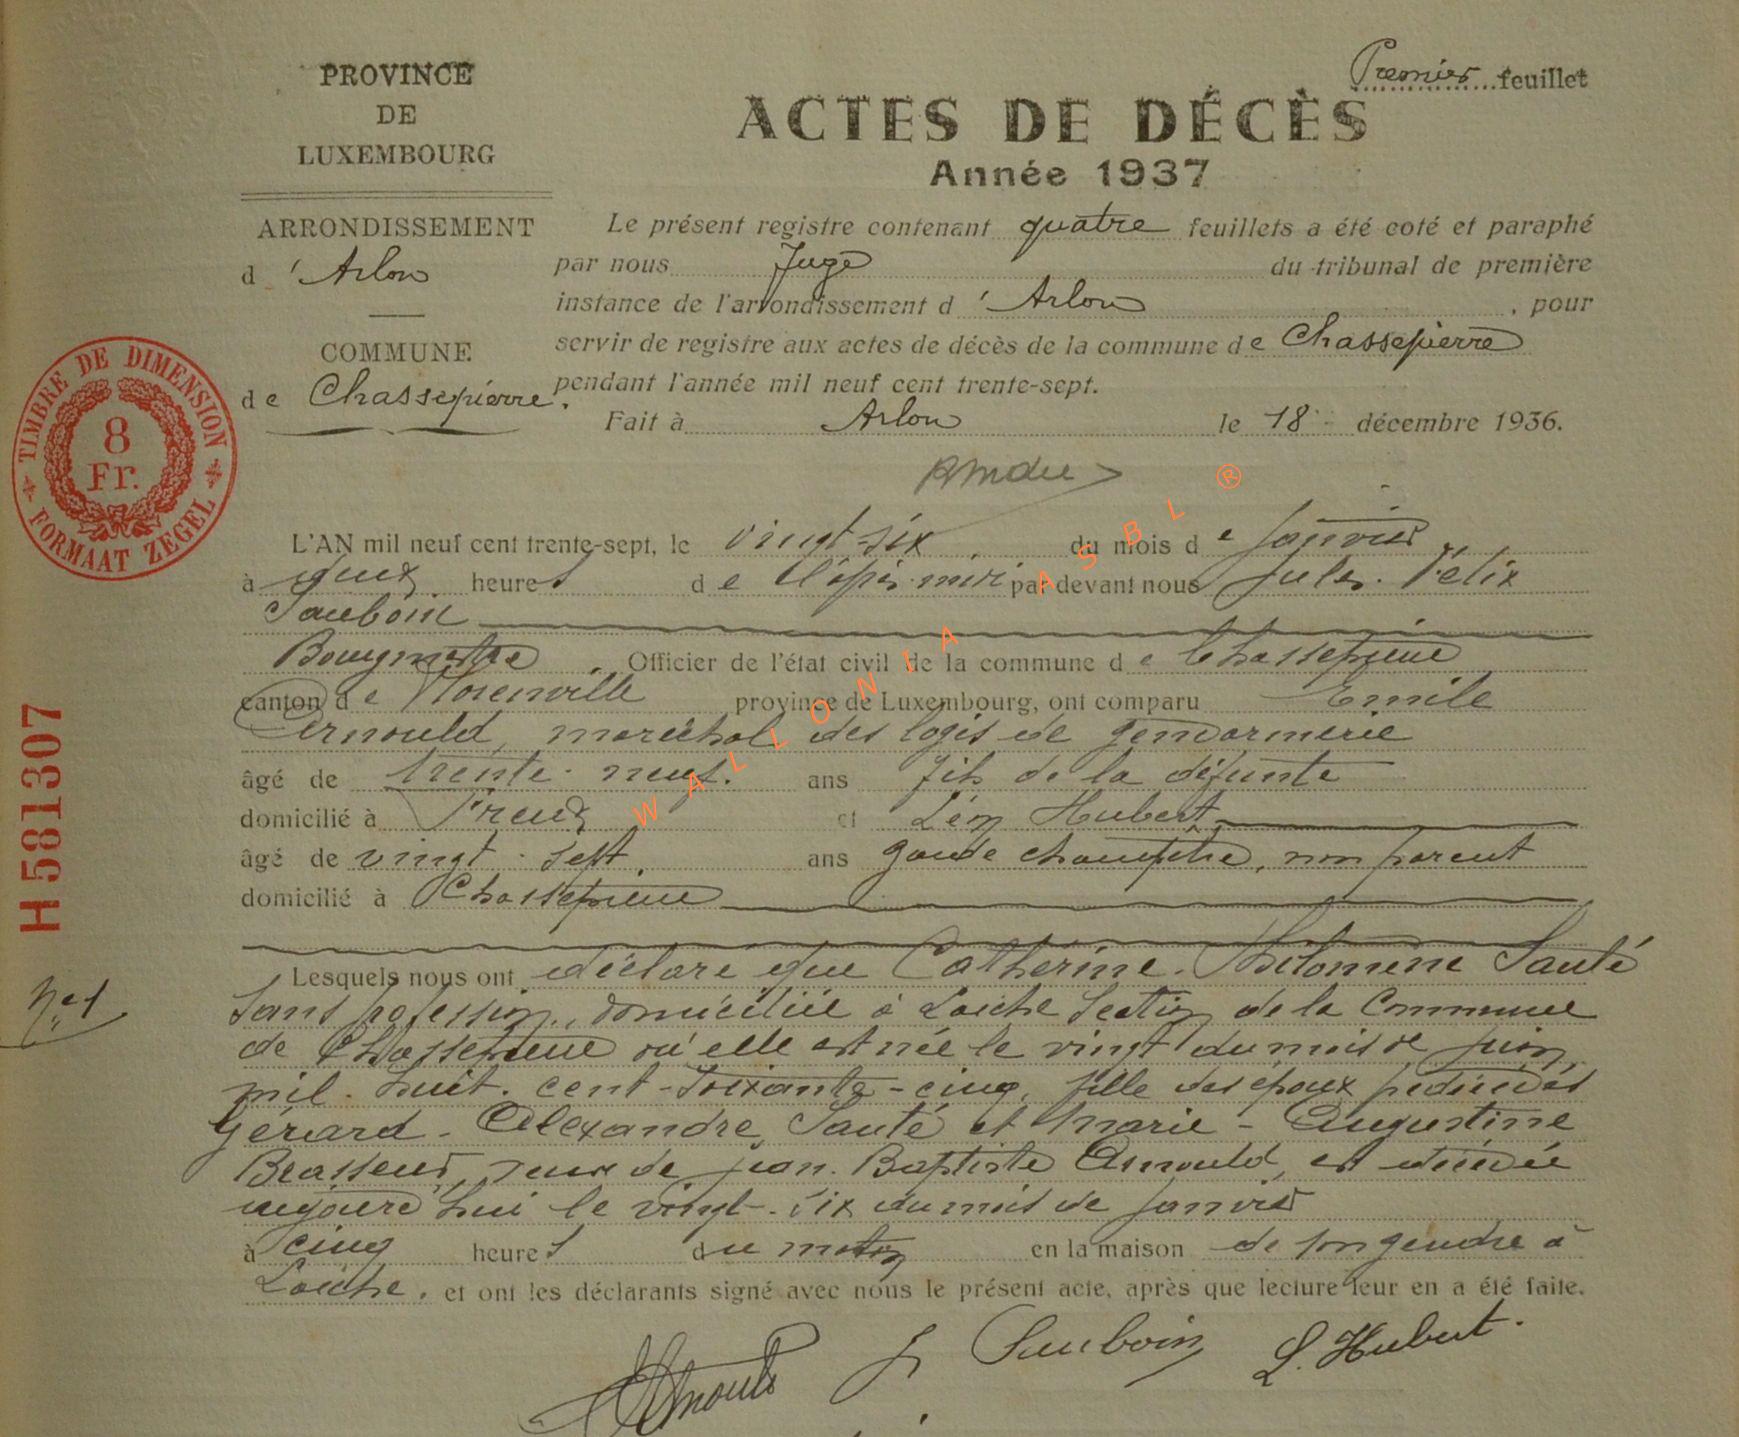 Premier feuillet
PROVINCE
DE
LUXEMBOURG
ACTES DE DÉCÈS
Année 1937
ARRONDISSEMENT
d 'Arlon
COMMUNE
de Chassepierre.
Le présent registre contenant quatre feuillets a été coté et paraphé
par nous Juge du tribunal de première
instance de l'arrondissement d 'Arlon , pour
servir de registre aux actes de décès de la commune de Chassepierre
pendant l'année mil neuf cent trente-sept.
Fait à Arlon le 18 décembre 1936.
TIMBRE DE DIMENSION
8
Fr.
FORMAAT ZEGEL
H581307
WALLONIA ASBL ®
L'AN mil neuf cent trente-sept, le vingt-six du mois de Janvier
à heures de l'après-midi par devant nous Jules-Félix
Sauboin
Bourgmestre, Officier de l'état civil de la commune de Chassepierre
canton de Florenville province de Luxembourg, ont comparu Emile
Arnould, maréchal des logis de gendarmerie
âgé de trente-neuf ans fils de la défunte
domicilié à et Léon Hubert
âgé de vingt-sept ans garde champêtre, non parent
domicilié à Chassepierre
No 1
Lesquels nous ont déclaré que Catherine-Philomène Sauté
sans profession, domiciliée à Laiche section de la Commune
de Chassepierre où elle est née le vingt du mois de juin
mil-huit-cent-soixante-cinq, fille des époux prédécédés
Gérard-Alexandre Sauté et Marie-Augustine
Brasseur, veuve de Jean-Baptiste Arnould, est décédée
aujourd'hui le vingt-six du mois de janvier
à cinq heures du matin en la maison de son gendre à
Laiche, et ont les déclarants signé avec nous le présent acte, après que lecture leur en a été faite.
EArnould J Sauboin L. Hubert.